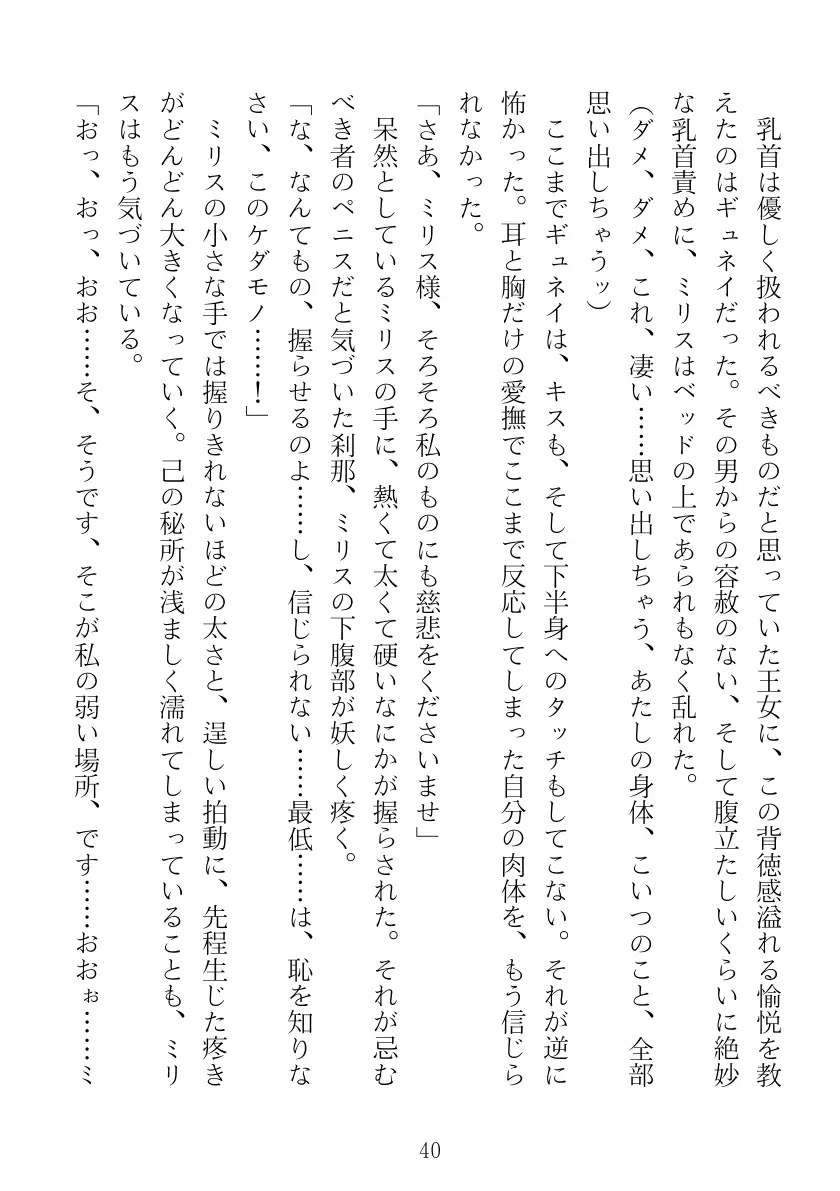 乳首は優しく扱われるべきものだと思っていた王女に、この背徳感溢れる愉悦を教
えたのはギュネイだった。その男からの容赦のない、そして腹立たしいくらいに絶妙
な乳首責めに、ミリスはベッドの上であられもなく乱れた。
（ダメ、ダメ、これ、凄い……思い出しちゃう、あたしの身体、こいつのこと、全部
思い出しちゃうッ）
ここまでギュネイは、キスも、そして下半身へのタッチもしてこない。それが逆に
怖かった。耳と胸だけの愛撫でここまで反応してしまった自分の肉体を、もう信じら
れなかった。
「さあ、ミリス様、そろそろ私のものにも慈悲をくださいませ」
呆然としているミリスの手に、熱くて太くて硬いなにかが握らされた。それが忌む
べき者のペニスだと気づいた刹那、ミリスの下腹部が妖しく疼く。
「な、なんてもの、握らせるのよ……し、信じられない……最低……は、恥を知りな
さい、このケダモノ……！」
ミリスの小さな手では握りきれないほどの太さと、逞しい拍動に、先程生じた疼き
がどんどん大きくなっていく。己の秘所が浅ましく濡れてしまっていることも、ミリ
スはもう気づいている。
「おっ、おっ、おお……そ、そうです、そこが私の弱い場所、です……おおぉ……ミ
40